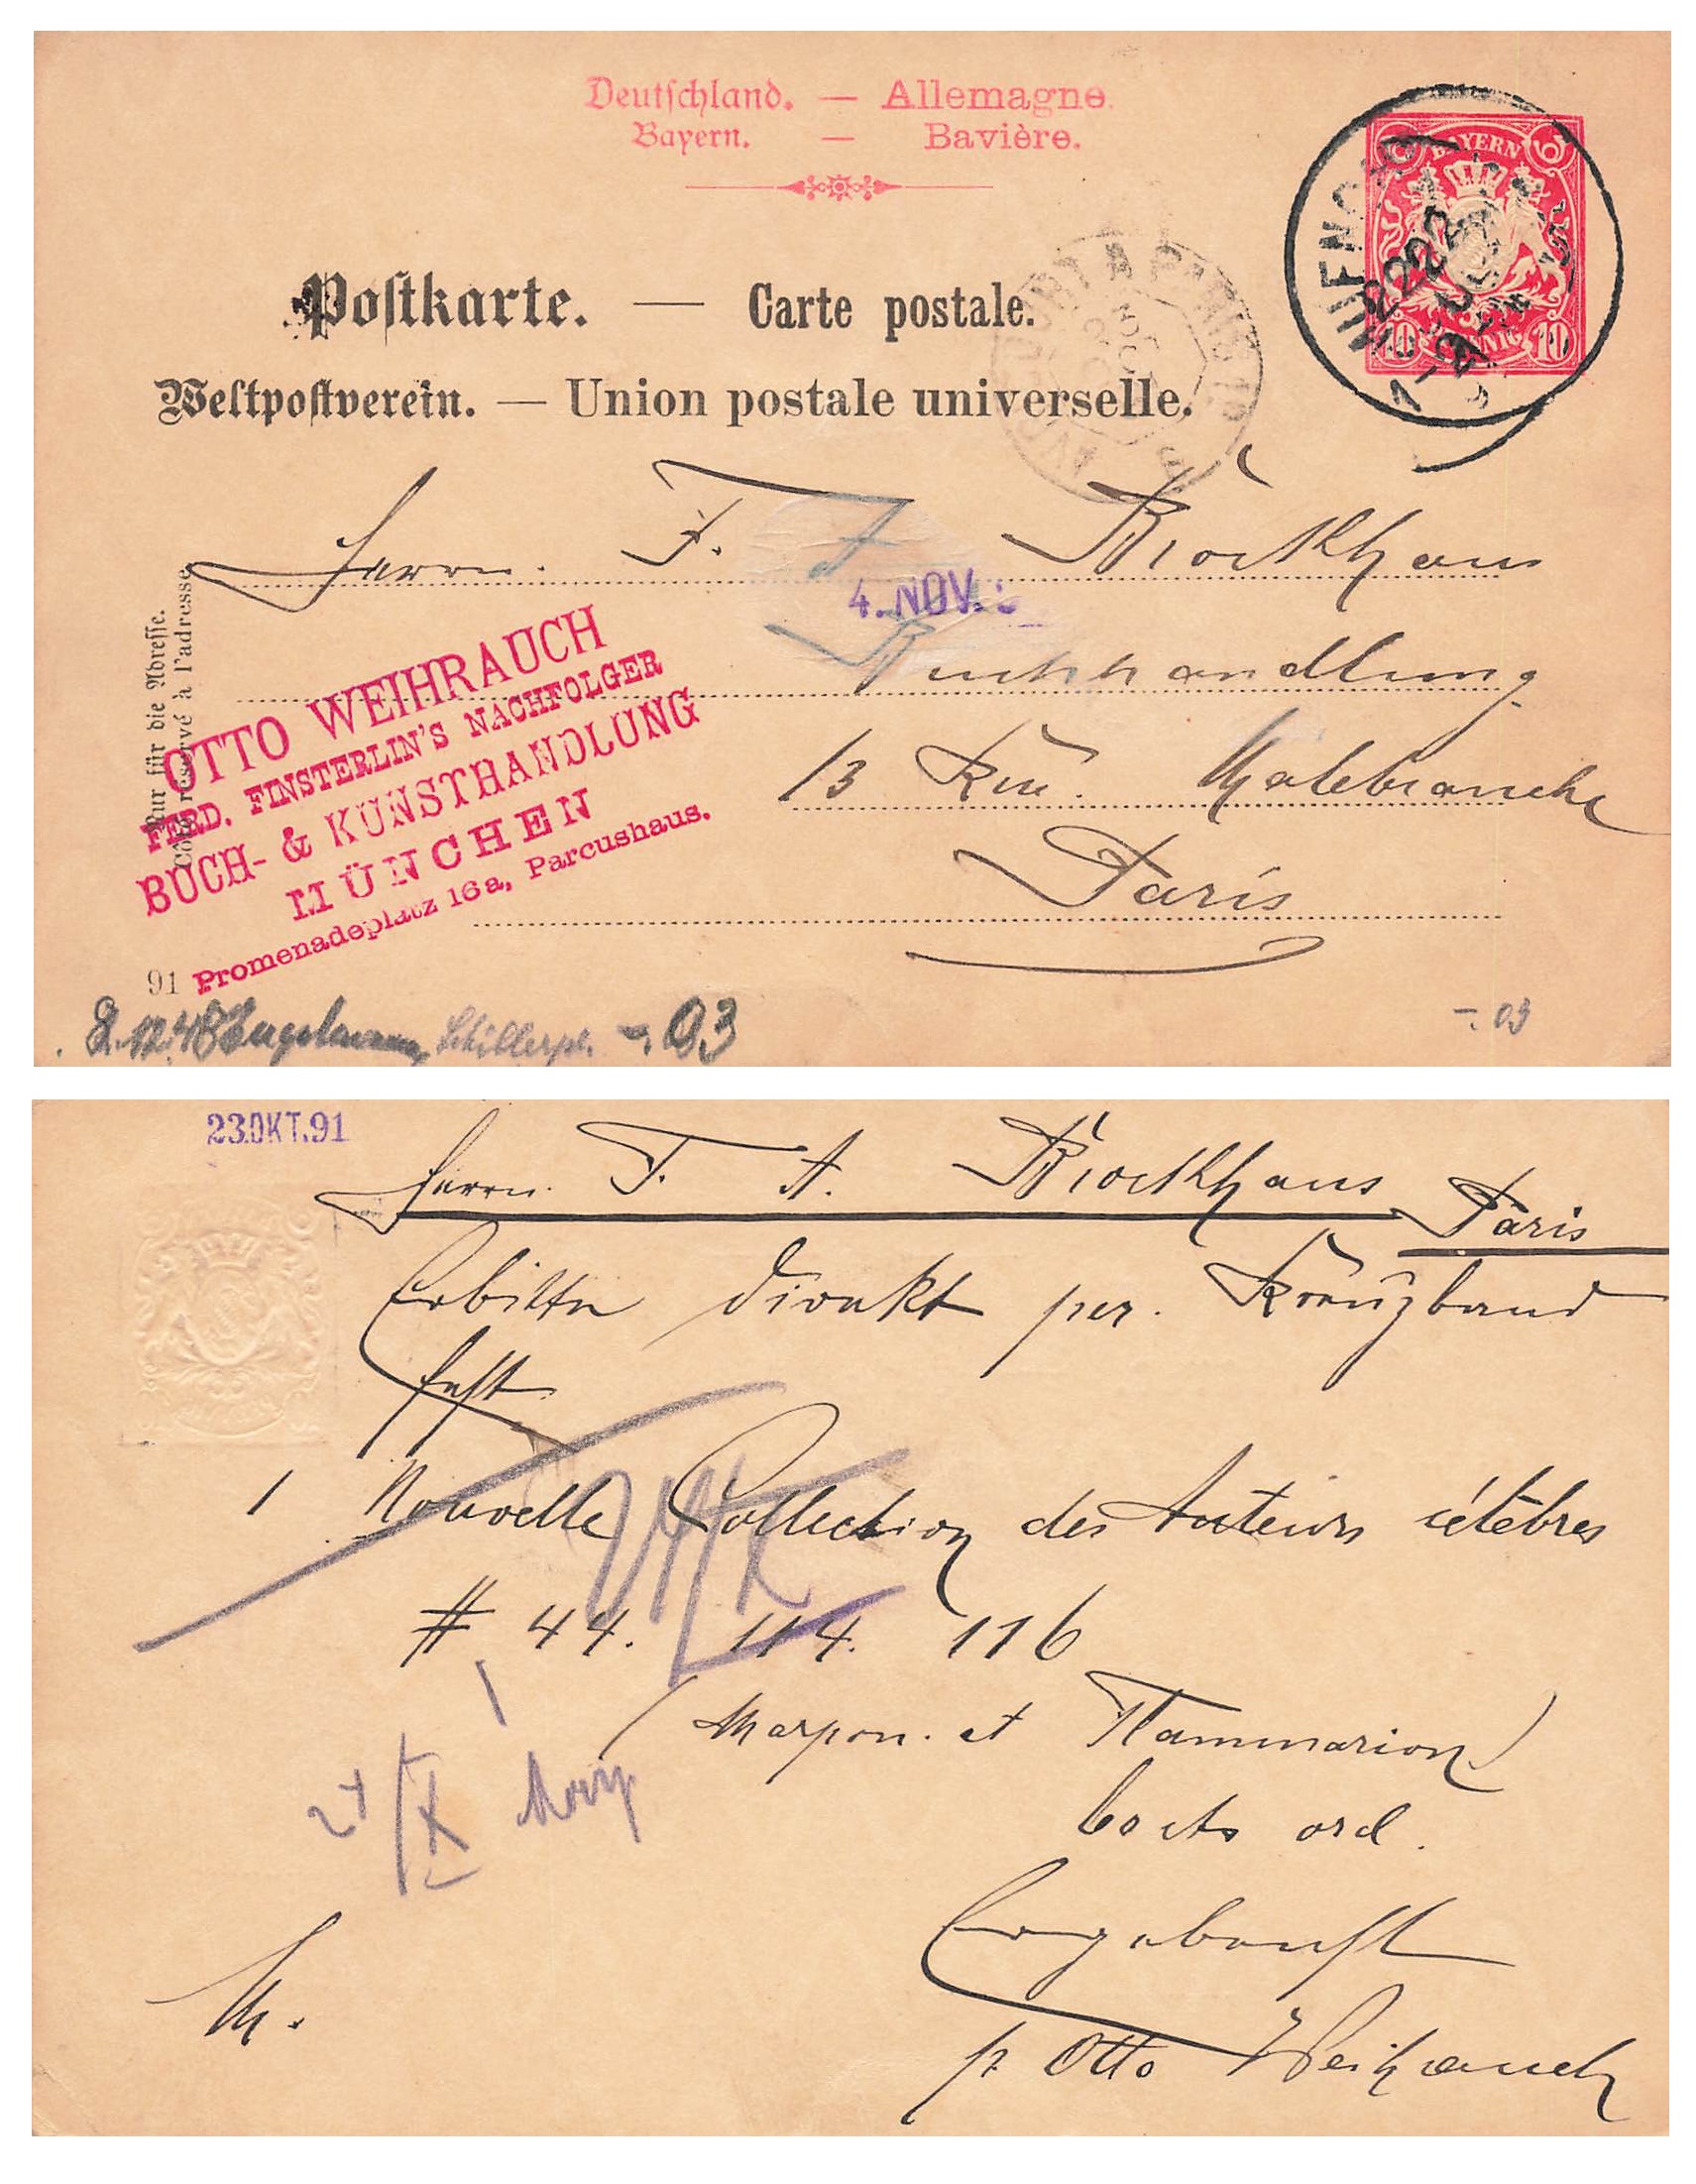 Deutschland. — Allemagne.
Bayern. — Bavière.
BAYERN
10 PFENNIG 10
MUENCHEN
Postkarte. — Carte postale.
Weltpostverein. — Union postale universelle.
A PARIS
Herrn. F. A Brockhaus
4. NOV.
Buchhandlung
13 Rue. Malebranche
Paris
Nur für die Adresse.
Côté réservé à l'adresse
OTTO WEIHRAUCH
FERD. FINSTERLIN'S NACHFOLGER
BUCH- & KUNSTHANDLUNG
MÜNCHEN
Promenadeplatz 16a, Parcushaus.
91
Engelmann, Schillerpl. -.03
-.03
23.OKT.91
Herrn. F. A. Brockhaus Paris
Erbitte direkt per. Kreuzband
fest
1 Nouvelle Collection des Auteurs célèbres
# 44. 114. 116
(Marpon. et Flammarion)
ord.
Ergebenst
p Otto Weihrauch